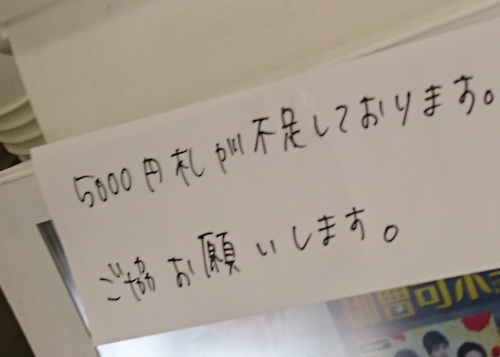 5000円札が不足しております。
ご協お願いします。